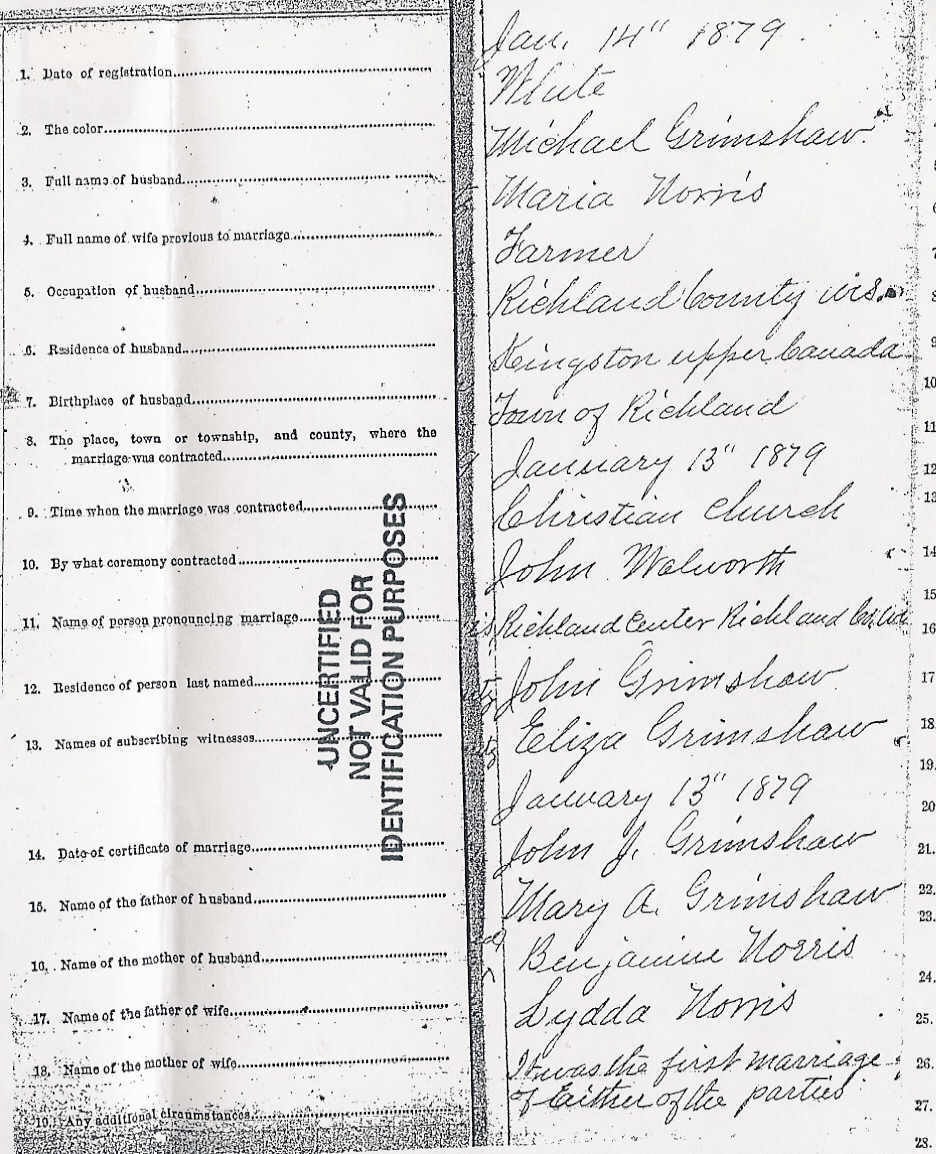 Jan. 14" 1879.
1. Date of registration
White
2. The color
Michael Grimshaw.
3. Full name of husband
Maria Norris
4. Full name of wife previous to marriage
Farmer
5. Occupation of husband
Richland County Wis.
6. Residence of husband
Kingston upper Canada
7. Birthplace of husband
Town of Richland
8. The place, town or township, and county, where the
marriage was contracted
January 13" 1879
9. Time when the marriage was contracted
Christian Church
10. By what ceremony contracted
John Walworth
11. Name of person pronouncing marriage
Richland Center Richland Co. Wis
12. Residence of person last named
John Grimshaw
13. Names of subscribing witnesses
Eliza Grimshaw
January 13" 1879
14. Date of certificate of marriage
John J. Grimshaw
15. Name of the father of husband
Mary A. Grimshaw
16. Name of the mother of husband
Benjamine Norris
17. Name of the father of wife
Lydda Norris
18. Name of the mother of wife
It was the first marriage
of Either of the parties
19. Any additional circumstances
UNCERTIFIED
NOT VALID FOR
IDENTIFICATION PURPOSES
9
10
11
12
13
14
15
16
17
18.
19.
20
21.
22.
23.
24.
25.
26.
27.
28.